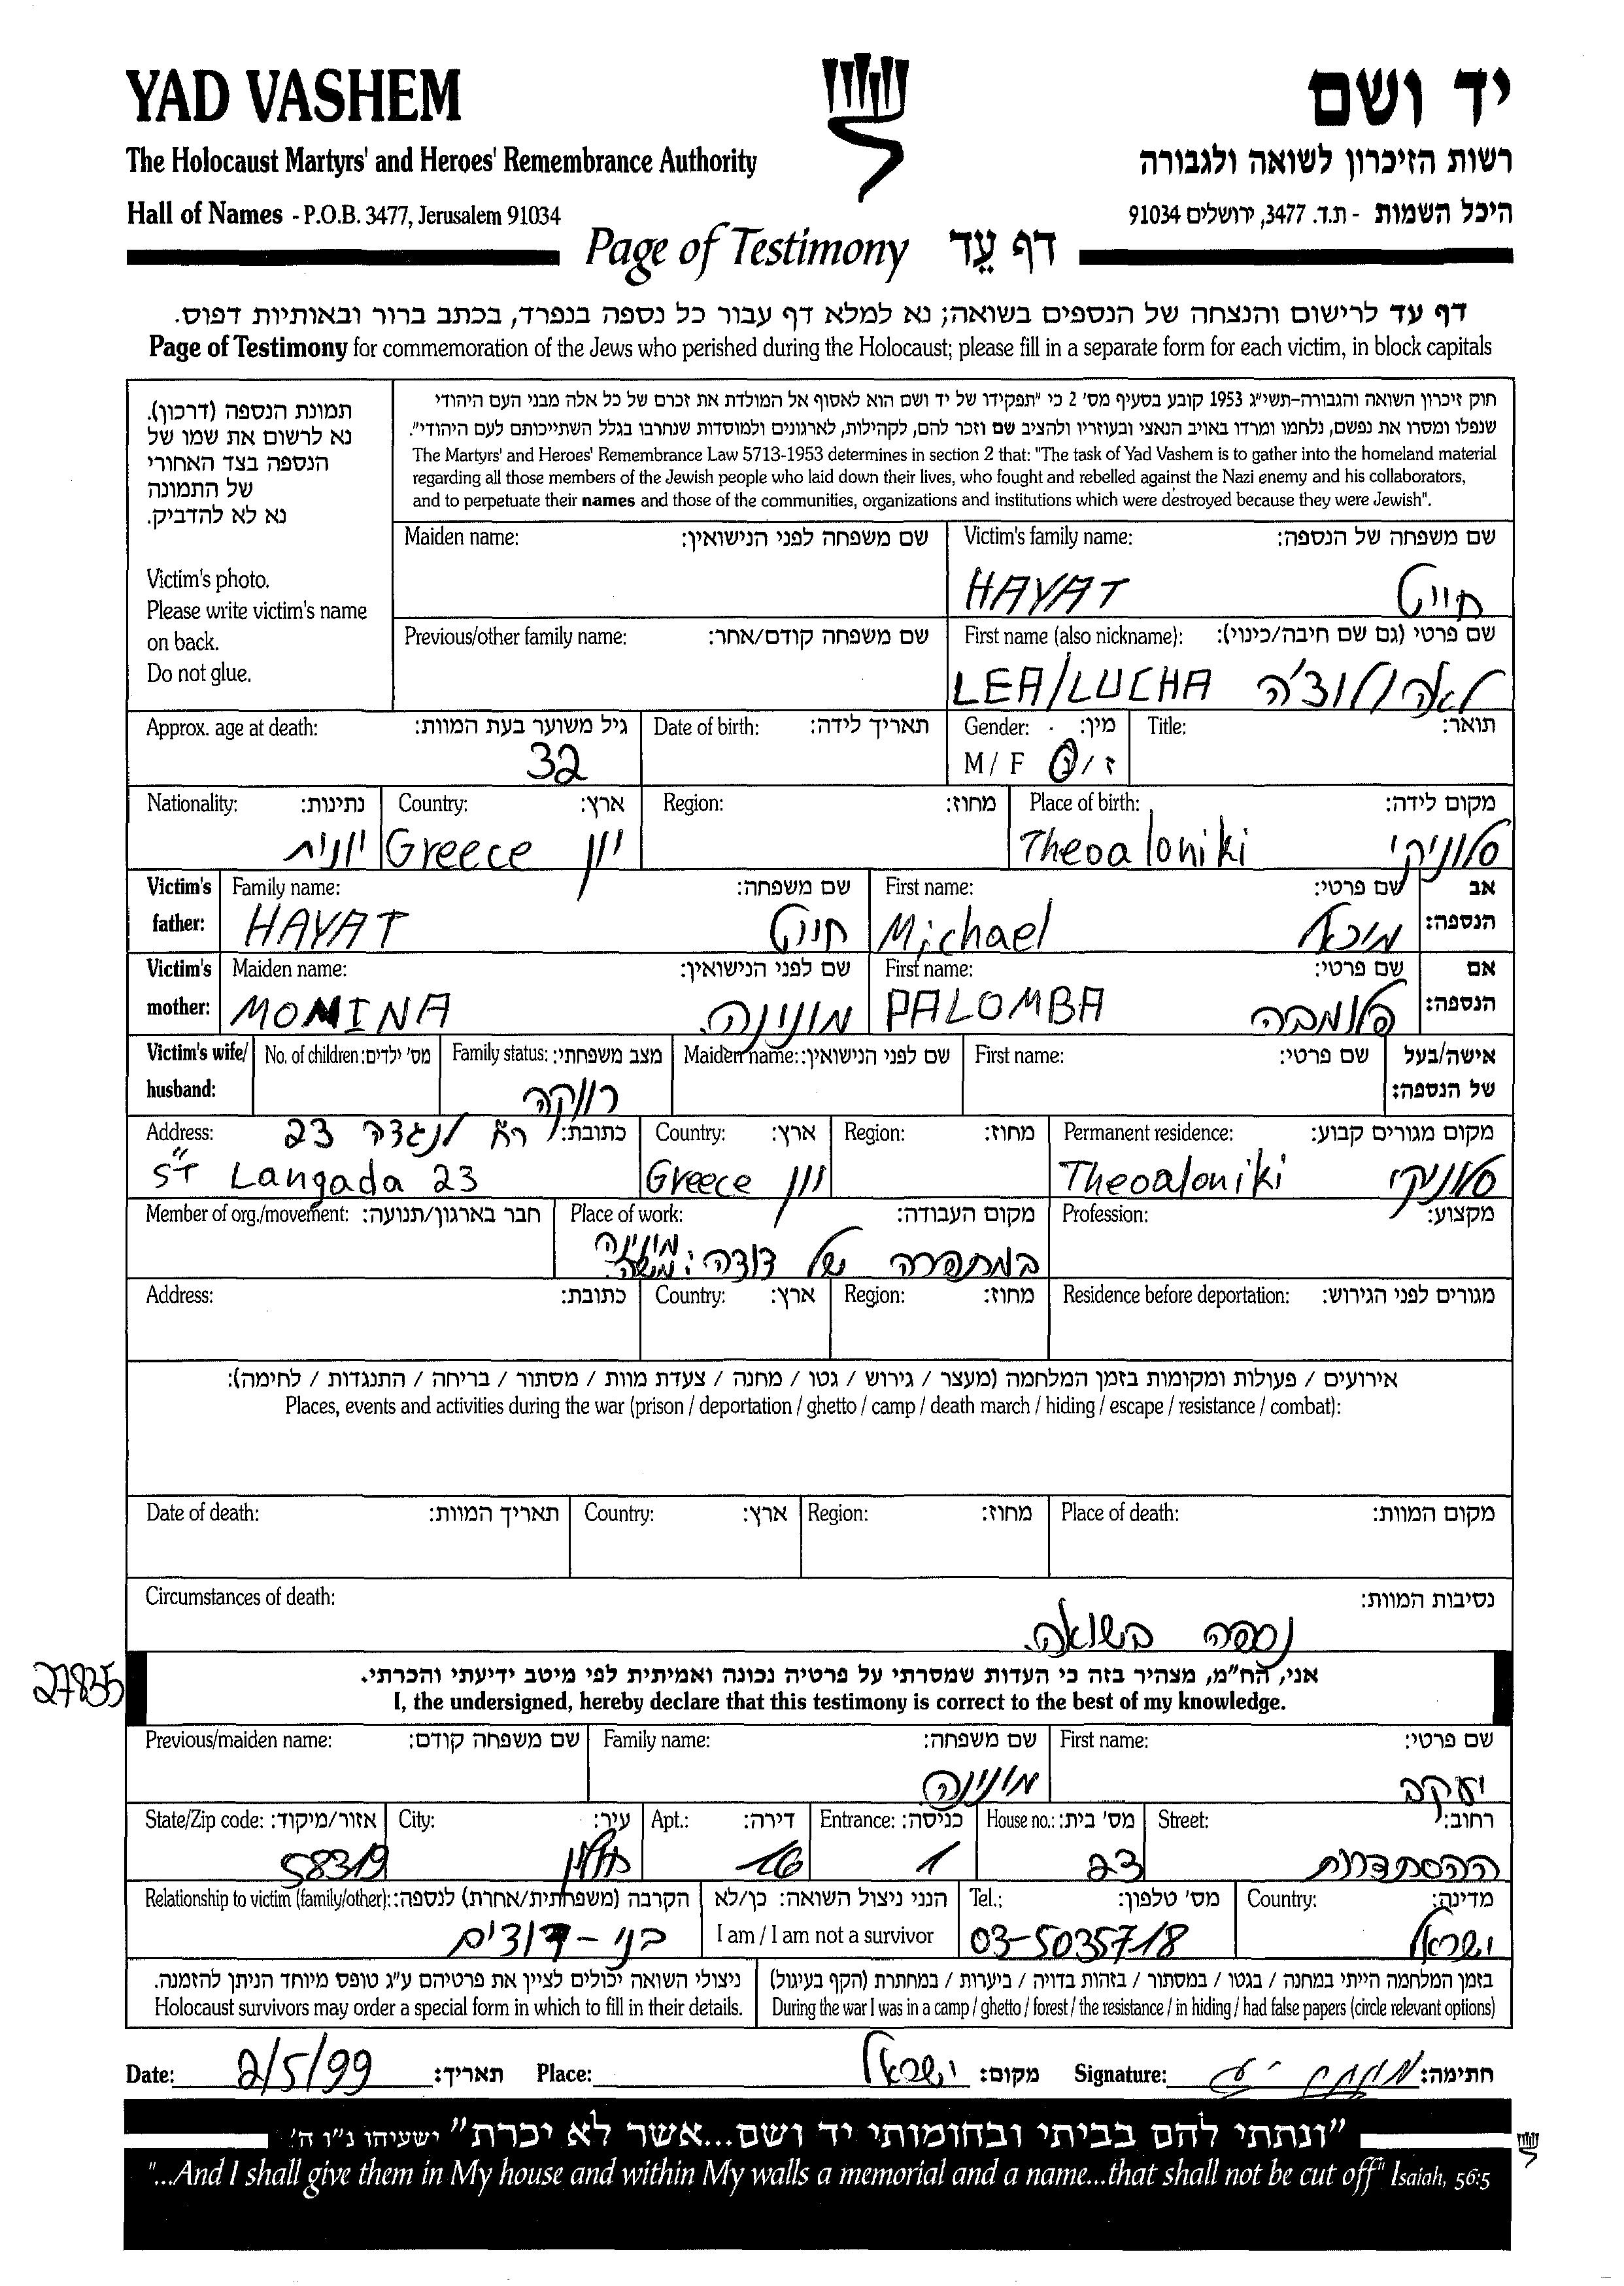 YAD VASHEM
יד ושם
The Holocaust Martyrs' and Heroes' Remembrance Authority
רשות הזיכרון לשואה ולגבורה
Hall of Names - P.O.B. 3477, Jerusalem 91034
היכל השמות - ת.ד. 3477, ירושלים 91034
Page of Testimony דף עֵד
דף עד לרישום והנצחה של הנספים בשואה; נא למלא דף עבור כל נספה בנפרד, בכתב ברור ובאותיות דפוס.
Page of Testimony for commemoration of the Jews who perished during the Holocaust; please fill in a separate form for each victim, in block capitals
תמונת הנספה (דרכון).
נא לרשום את שמו של
הנספה בצד האחורי
של התמונה
נא לא להדביק.
Victim's photo.
Please write victim's name
on back.
Do not glue.
חוק זיכרון השואה והגבורה-תשי"ג 1953 קובע בסעיף מס' 2 כי "תפקידו של יד ושם הוא לאסוף אל המולדת את זכרם של כל אלה מבני העם היהודי
שנפלו ומסרו את נפשם, נלחמו ומרדו באויב הנאצי ובעוזריו ולהציב שם וזכר להם, לקהילות, לארגונים ולמוסדות שנחרבו בגלל השתייכותם לעם היהודי".
The Martyrs' and Heroes' Remembrance Law 5713-1953 determines in section 2 that: "The task of Yad Vashem is to gather into the homeland material
regarding all those members of the Jewish people who laid down their lives, who fought and rebelled against the Nazi enemy and his collaborators,
and to perpetuate their names and those of the communities, organizations and institutions which were destroyed because they were Jewish".
Maiden name: שם משפחה לפני הנישואין:
Victim's family name: שם משפחה של הנספה:
HAYAT חייט
Previous/other family name: שם משפחה קודם/אחר:
First name (also nickname): שם פרטי (גם שם חיבה/כינוי):
LEA/LUCHA לאה/לוצ'ה
Approx. age at death: גיל משוער בעת המוות:
32
Date of birth: תאריך לידה:
Gender: מין:
M / F ז / נ
Title: תואר:
Nationality: נתינות:
יוונית
Country: ארץ:
Greece יוון
Region: מחוז:
Place of birth: מקום לידה:
Theoaloniki סלוניקי
Victim's father: Family name: שם משפחה:
HAYAT חייט
First name: שם פרטי: אב הנספה:
Michael מיכאל
Victim's mother: Maiden name: שם לפני הנישואין:
MOMINA מונינה
First name: שם פרטי: אם הנספה:
PALOMBA פלומבה
Victim's wife/ husband: No. of children: מס' ילדים: Family status: מצב משפחתי: Maiden name: שם לפני הנישואין: First name: שם פרטי: אישה/בעל של הנספה:
רווקה
Address: כתובת:
רח לנגדה 23
ST Langada 23
Country: ארץ:
Greece יוון
Region: מחוז:
Permanent residence: מקום מגורים קבוע:
Theoaloniki סלוניקי
Member of org./movement: חבר בארגון/תנועה:
Place of work: מקום העבודה:
במתפרה של דודה: מונינה משה.
Profession: מקצוע:
Address: כתובת: Country: ארץ: Region: מחוז: Residence before deportation: מגורים לפני הגירוש:
אירועים / פעולות ומקומות בזמן המלחמה (מעצר / גירוש / גטו / מחנה / צעדת מוות / מסתור / בריחה / התנגדות / לחימה):
Places, events and activities during the war (prison / deportation / ghetto / camp / death march / hiding / escape / resistance / combat):
Date of death: תאריך המוות: Country: ארץ: Region: מחוז: Place of death: מקום המוות:
Circumstances of death: נסיבות המוות:
נספה בשואה.
27835
אני, הח"מ, מצהיר בזה כי העדות שמסרתי על פרטיה נכונה ואמיתית לפי מיטב ידיעתי והכרתי.
I, the undersigned, hereby declare that this testimony is correct to the best of my knowledge.
Previous/maiden name: שם משפחה קודם:
Family name: שם משפחה:
מונינה
First name: שם פרטי:
יעקב
State/Zip code: אזור/מיקוד:
58319
City: עיר:
חולון
Apt.: דירה:
16
Entrance: כניסה:
1
House no.: מס' בית:
23
Street: רחוב:
ההסתדרות
Relationship to victim (family/other): הקרבה (משפחתית/אחרת) לנספה:
בני-דודים
הנני ניצול השואה: כן/לא
I am / I am not a survivor
Tel.: מס' טלפון:
03-5035718
Country: מדינה:
ישראל
ניצולי השואה יכולים לציין את פרטיהם ע"ג טופס מיוחד הניתן להזמנה.
Holocaust survivors may order a special form in which to fill in their details.
בזמן המלחמה הייתי במחנה / בגטו / במסתור / בזהות בדויה / ביערות / במחתרת (הקף בעיגול)
During the war I was in a camp / ghetto / forest / the resistance / in hiding / had false papers (circle relevant options)
Date: 2/5/99 תאריך: Place: ישראל מקום: Signature: חתימה:
"ונתתי להם בביתי ובחומותי יד ושם...אשר לא יכרת" ישעיהו נ"ו ה'
"...And I shall give them in My house and within My walls a memorial and a name...that shall not be cut off" Isaiah, 56:5